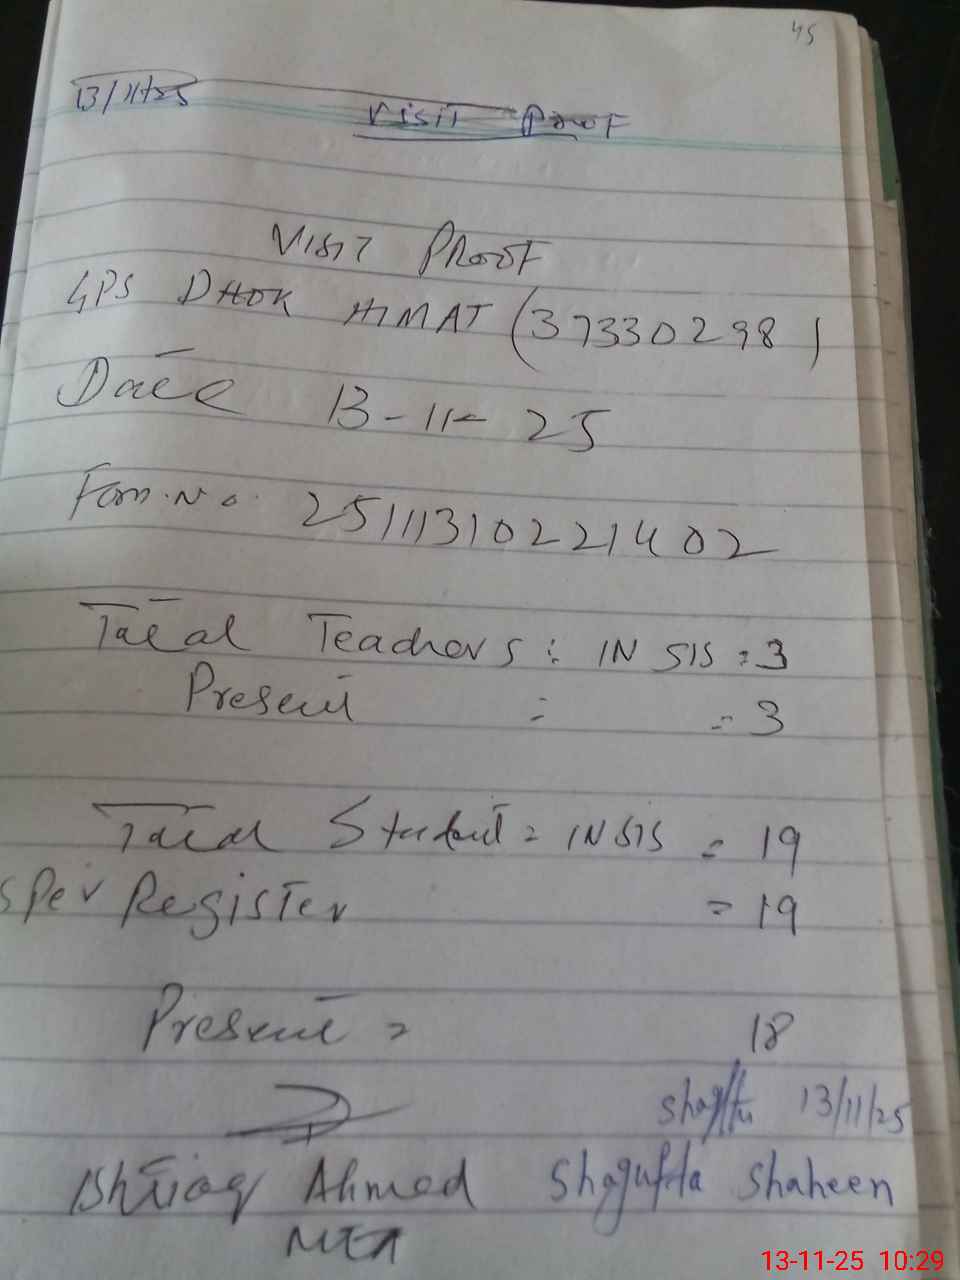 45
13/11/25
Visit Proof
VISIT PROOF
GPS DHOK HIMAT (37330298)
Date 13-11-25
Form.No. 25111310221402
Total Teachers : IN SIS = 3
Present : = 3
Total Student = IN SIS = 19
s Per Register = 19
Present = 18
13/11/25
Ishtiaq Ahmed Shagufta Shaheen
MEA
13-11-25 10:29